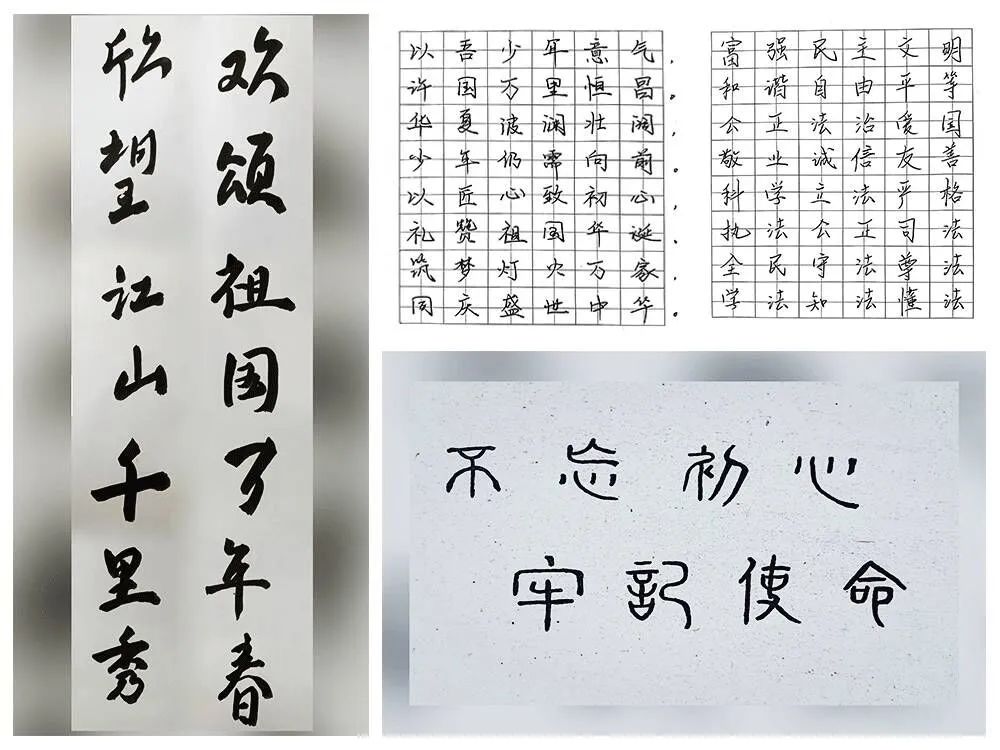 欣望江山千里秀
欢颂祖国万年春
以吾少年意气，
许国万里恒昌。
华夏波澜壮阔，
少年仍需向前。
以匠心致初心，
礼赞祖国华诞，
筑梦灯火万家，
同庆盛世中华。
富强民主文明
和谐自由平等
公正法治爱国
敬业诚信友善
科学立法严格
执法公正司法
全民守法尊法
学法知法懂法
不忘初心
牢記使命